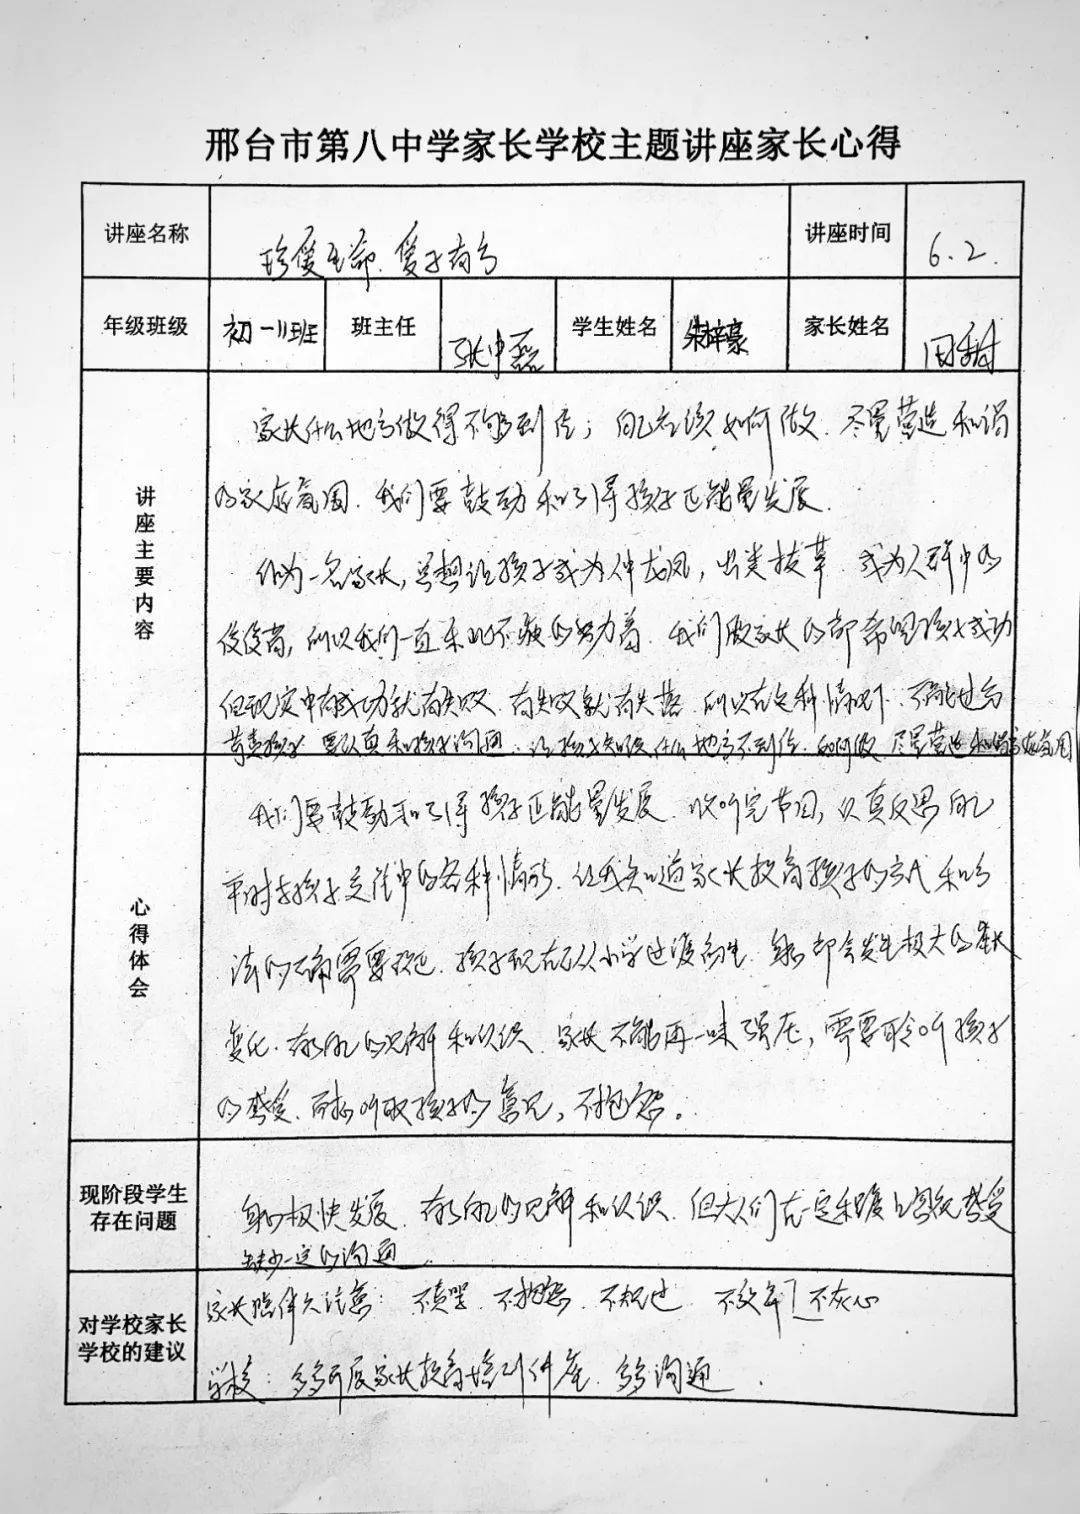 邢台市第八中学家长学校主题讲座家长心得
讲座名称 珍爱生命.爱子有方 讲座时间 6.2.
年级班级 初一11班 班主任 张中磊 学生姓名 朱梓豪 家长姓名
讲座主要内容
家长什么地方做得不够到位；自己应该如何做.尽量营造和谐
的家庭氛围.我们要鼓励和引导孩子正能量发展.
作为一名家长，总想让孩子成为人中龙凤，出类拔萃.成为人群中的
佼佼者，所以我们一直乐此不疲的努力着.我们做家长的都希望孩子成功
但现实中有成功就有失败.有失败就有失落.所以在这种情况下.不能过分
苛责孩子 要认真和孩子沟通.让孩子知道什么地方不到位.如何做 尽量营造和谐家庭氛围
心得体会
我们要鼓励和引导孩子正能量发展.收听完节目，认真反思自己
平时与孩子交往中的各种情形.让我知道家长教育孩子的方式和方
法的确需要改进.孩子现在从小学过渡初中生.身心都会发生极大的成长
变化.有自己的见解和认识.家长不能再一味强压，需要聆听孩子
的感受.耐心听取孩子的意见，不抱怨。
现阶段学生存在问题
身心极快发展.有自己的见解和认识.但大人们在一定程度上忽视感受
缺少一定的沟通.
对学校家长学校的建议
家长陪伴久注意：不责骂.不抱怨.不放弃！不灰心
学校：多多开展家长教育培训讲座.多多沟通.